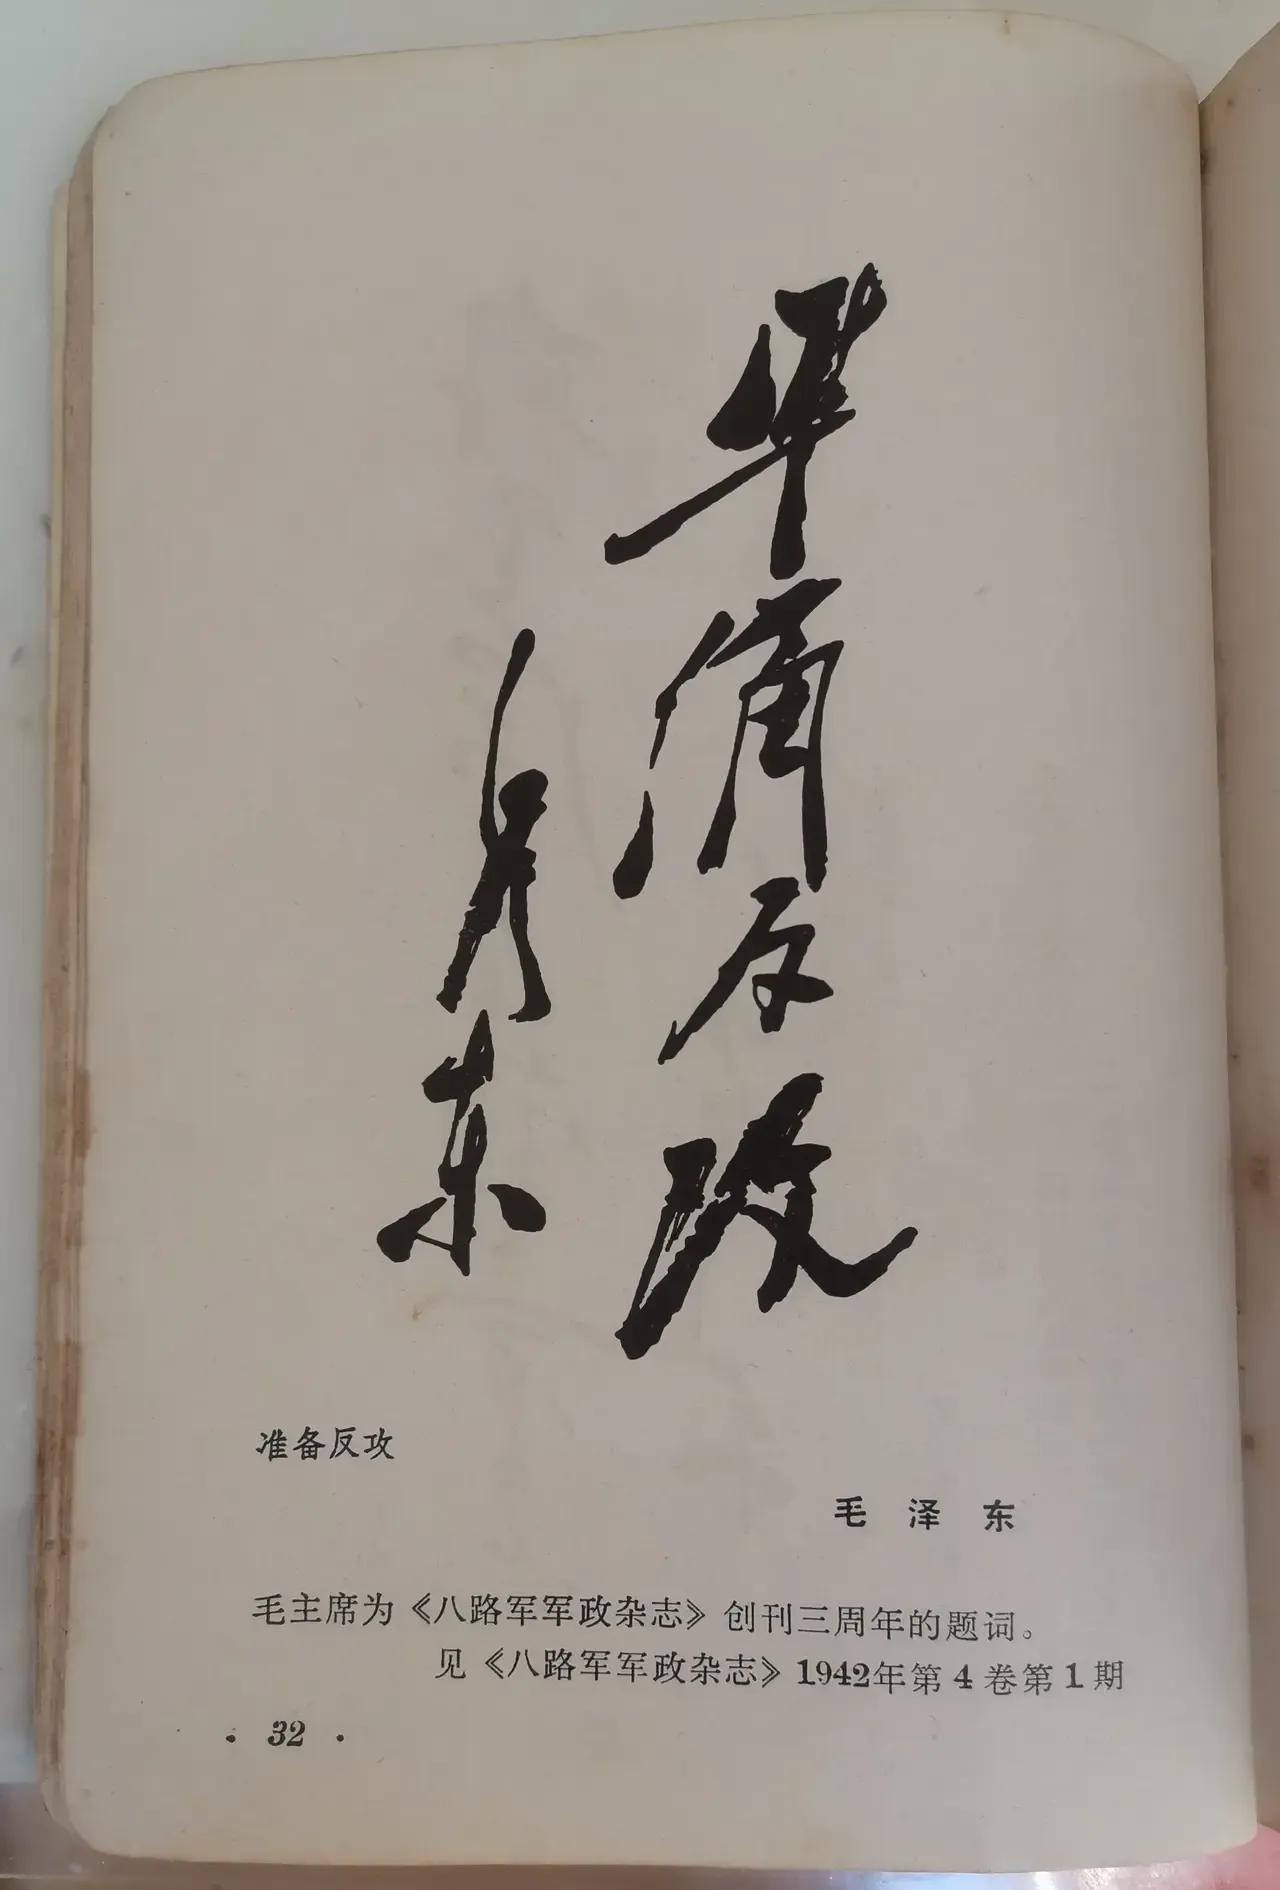 準備反攻
毛澤東
准备反攻
毛泽东
毛主席为《八路军军政杂志》创刊三周年的题词。
见《八路军军政杂志》1942年第4卷第1期
· 32 ·